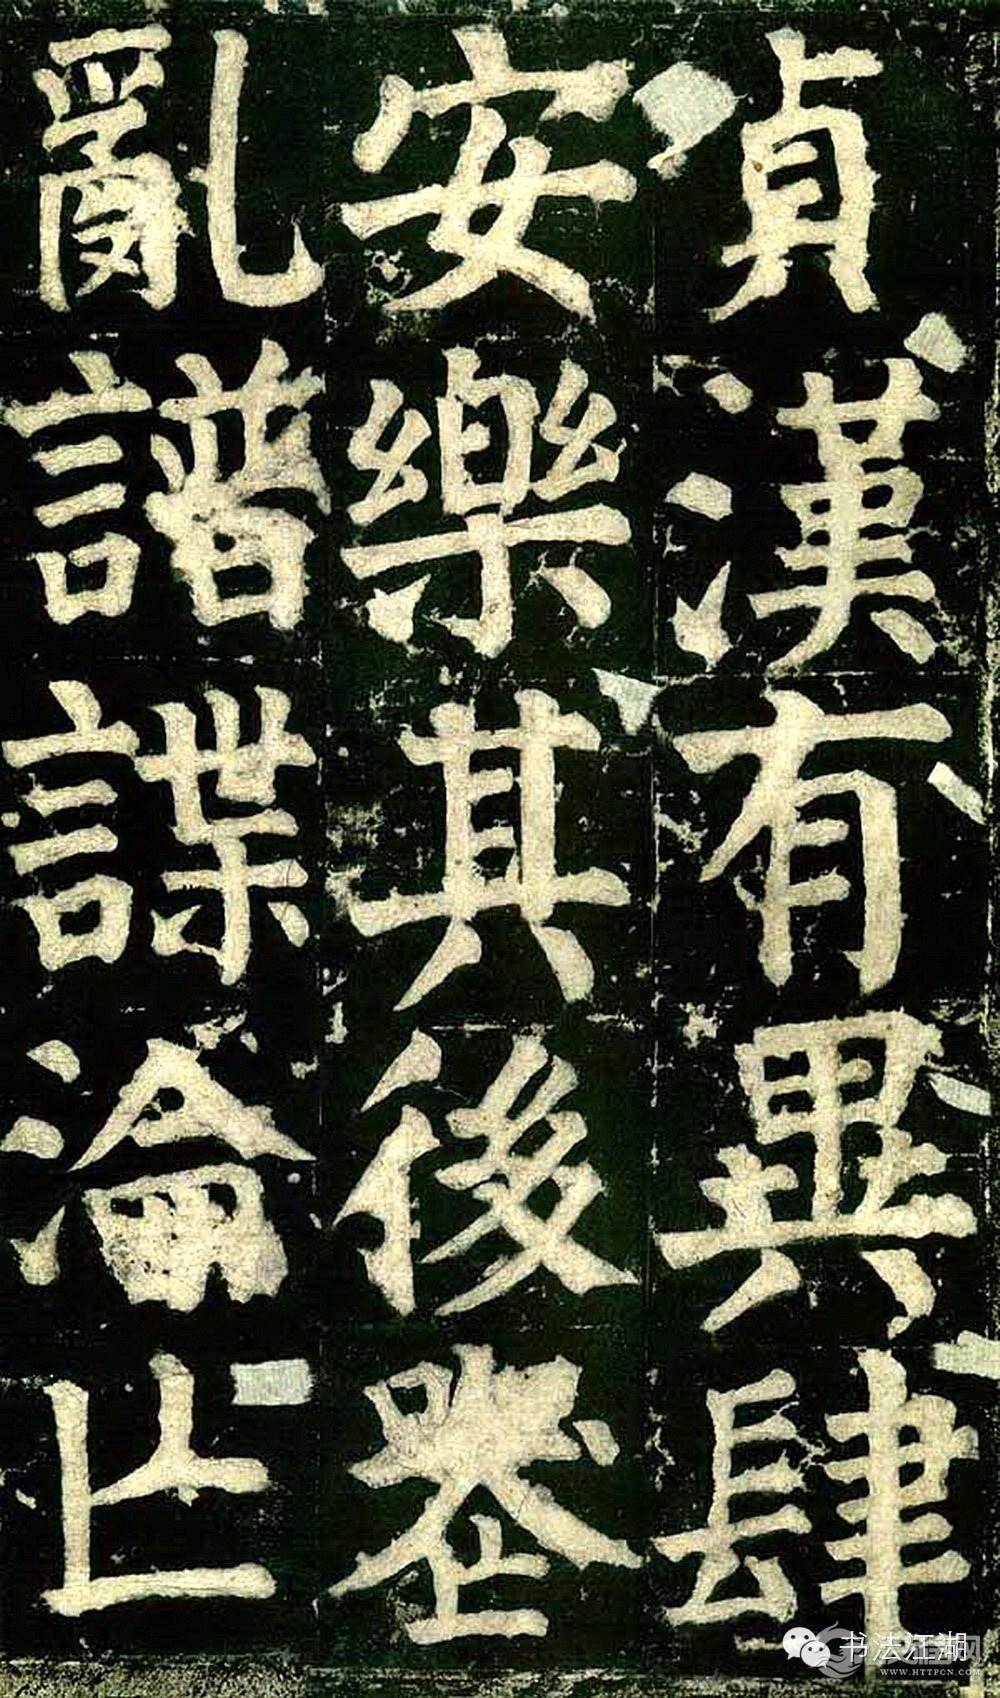 貞漢有異肆
安樂其後喪
亂譜諜淪亡
书法江湖
WWW.HTTPCN.COM